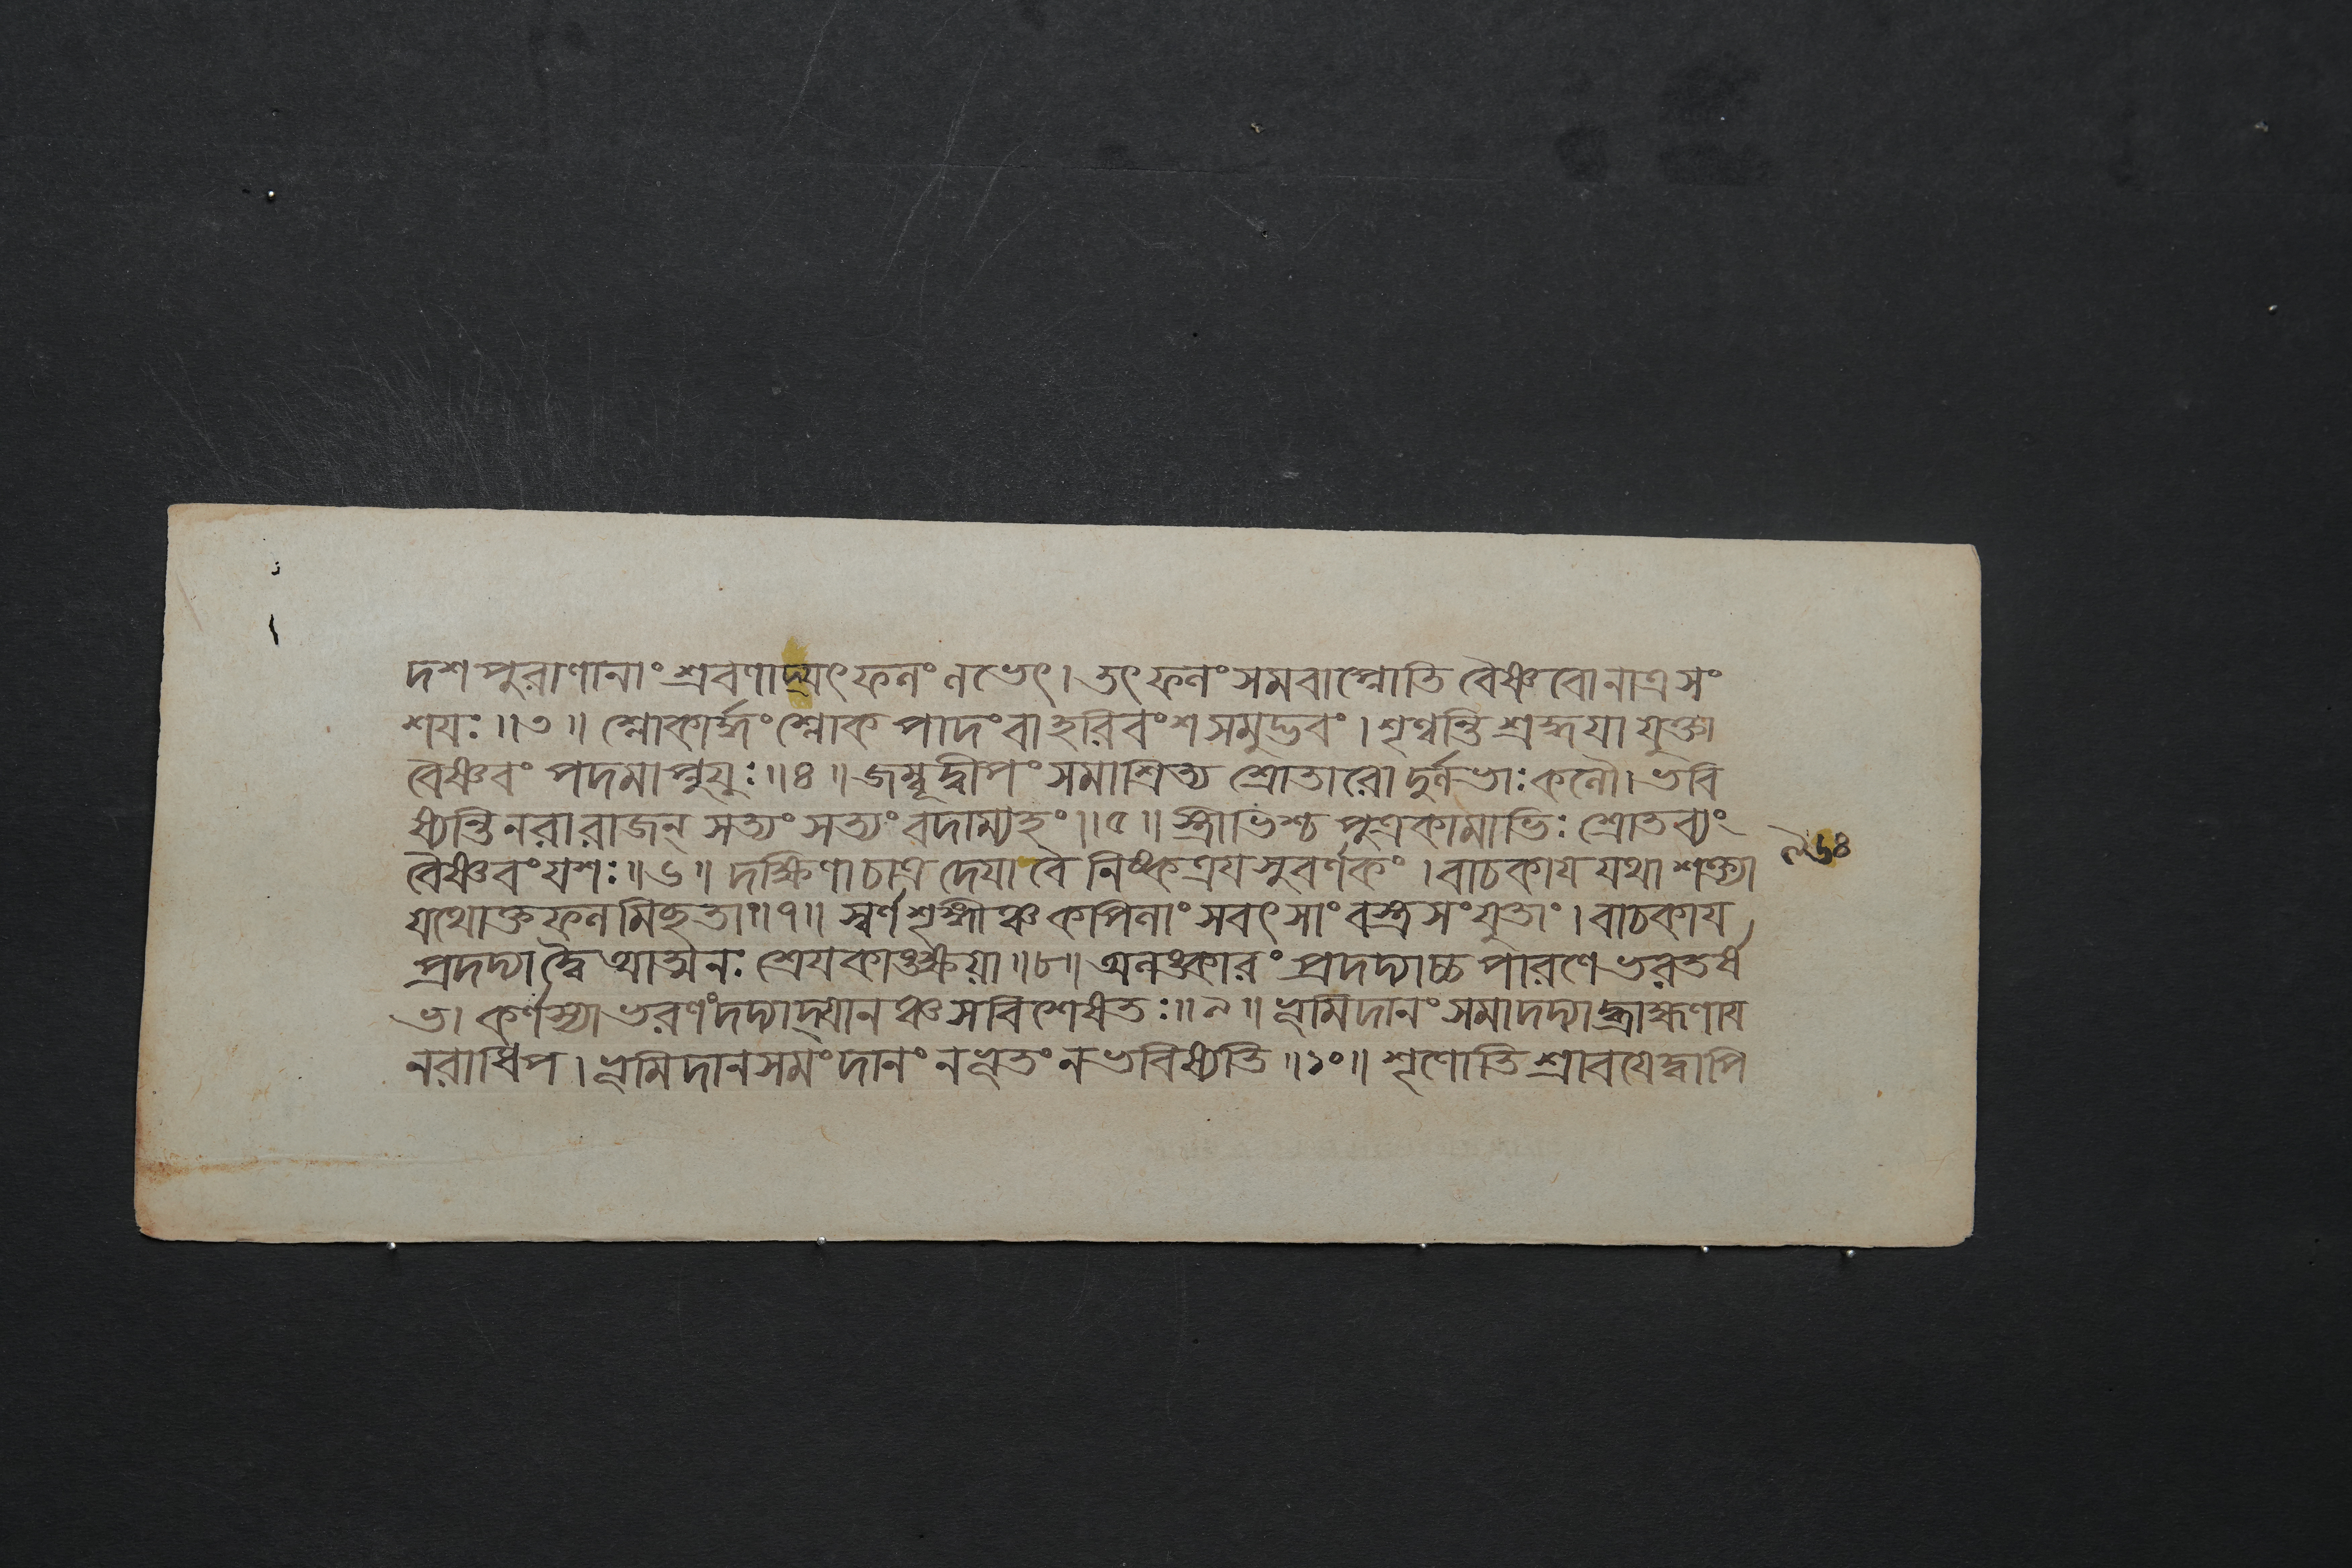 দশপুরাণানাং শ্রবণাদ্যৎফলং লভেৎ। তৎফলং সমবাপ্নোতি বৈষ্ণবো নাত্র সং
শয়ঃ॥৩॥ শ্লোকার্দ্ধং শ্লোকপাদং বা হরিবংশসমুদ্ভবং। শৃণ্বন্তি শ্রদ্ধয়া যুক্তা
বৈষ্ণবং পদমাপ্নুয়ুঃ॥৪॥ জম্বূদ্বীপং সমাশ্রিত্য শ্রোতারো দুর্লভাঃ কলৌ। ভবি
ষ্যন্তি নরা রাজন্ সত্যং সত্যং বদাম্যহং॥৫॥ স্ত্রীভিশ্চ পুত্রকামাভিঃ শ্রোতব্যং
বৈষ্ণবং যশঃ॥৬॥ দক্ষিণা চাত্র দেয়া বৈ নিষ্কত্রয়সুবর্ণকং। বাচকায় যথাশক্ত্যা
যথোক্তফলমিহতাং॥৭॥ স্বর্ণশৃঙ্গীঞ্চ কপিলাং সবৎসাং বস্ত্রসংযুতাং। বাচকায়
প্রদদ্যাদ্বৈ আত্মনঃ শ্রেয়কাঙ্ক্ষয়া॥৮॥ অলঙ্কারং প্রদদ্যাচ্চ পারণে ভরতর্ষ
ভ। কর্ণস্যাভরণং দদ্যাদ্যানঞ্চ সবিশেষতঃ॥৯॥ ভূমিদানং সমাদদ্যাদ্ব্রাহ্মণায়
নরাধিপ। ভূমিদানসমং দানং ন ভূতং ন ভবিষ্যতি॥১০॥ শৃণোতি শ্রাবয়েদ্বাপি